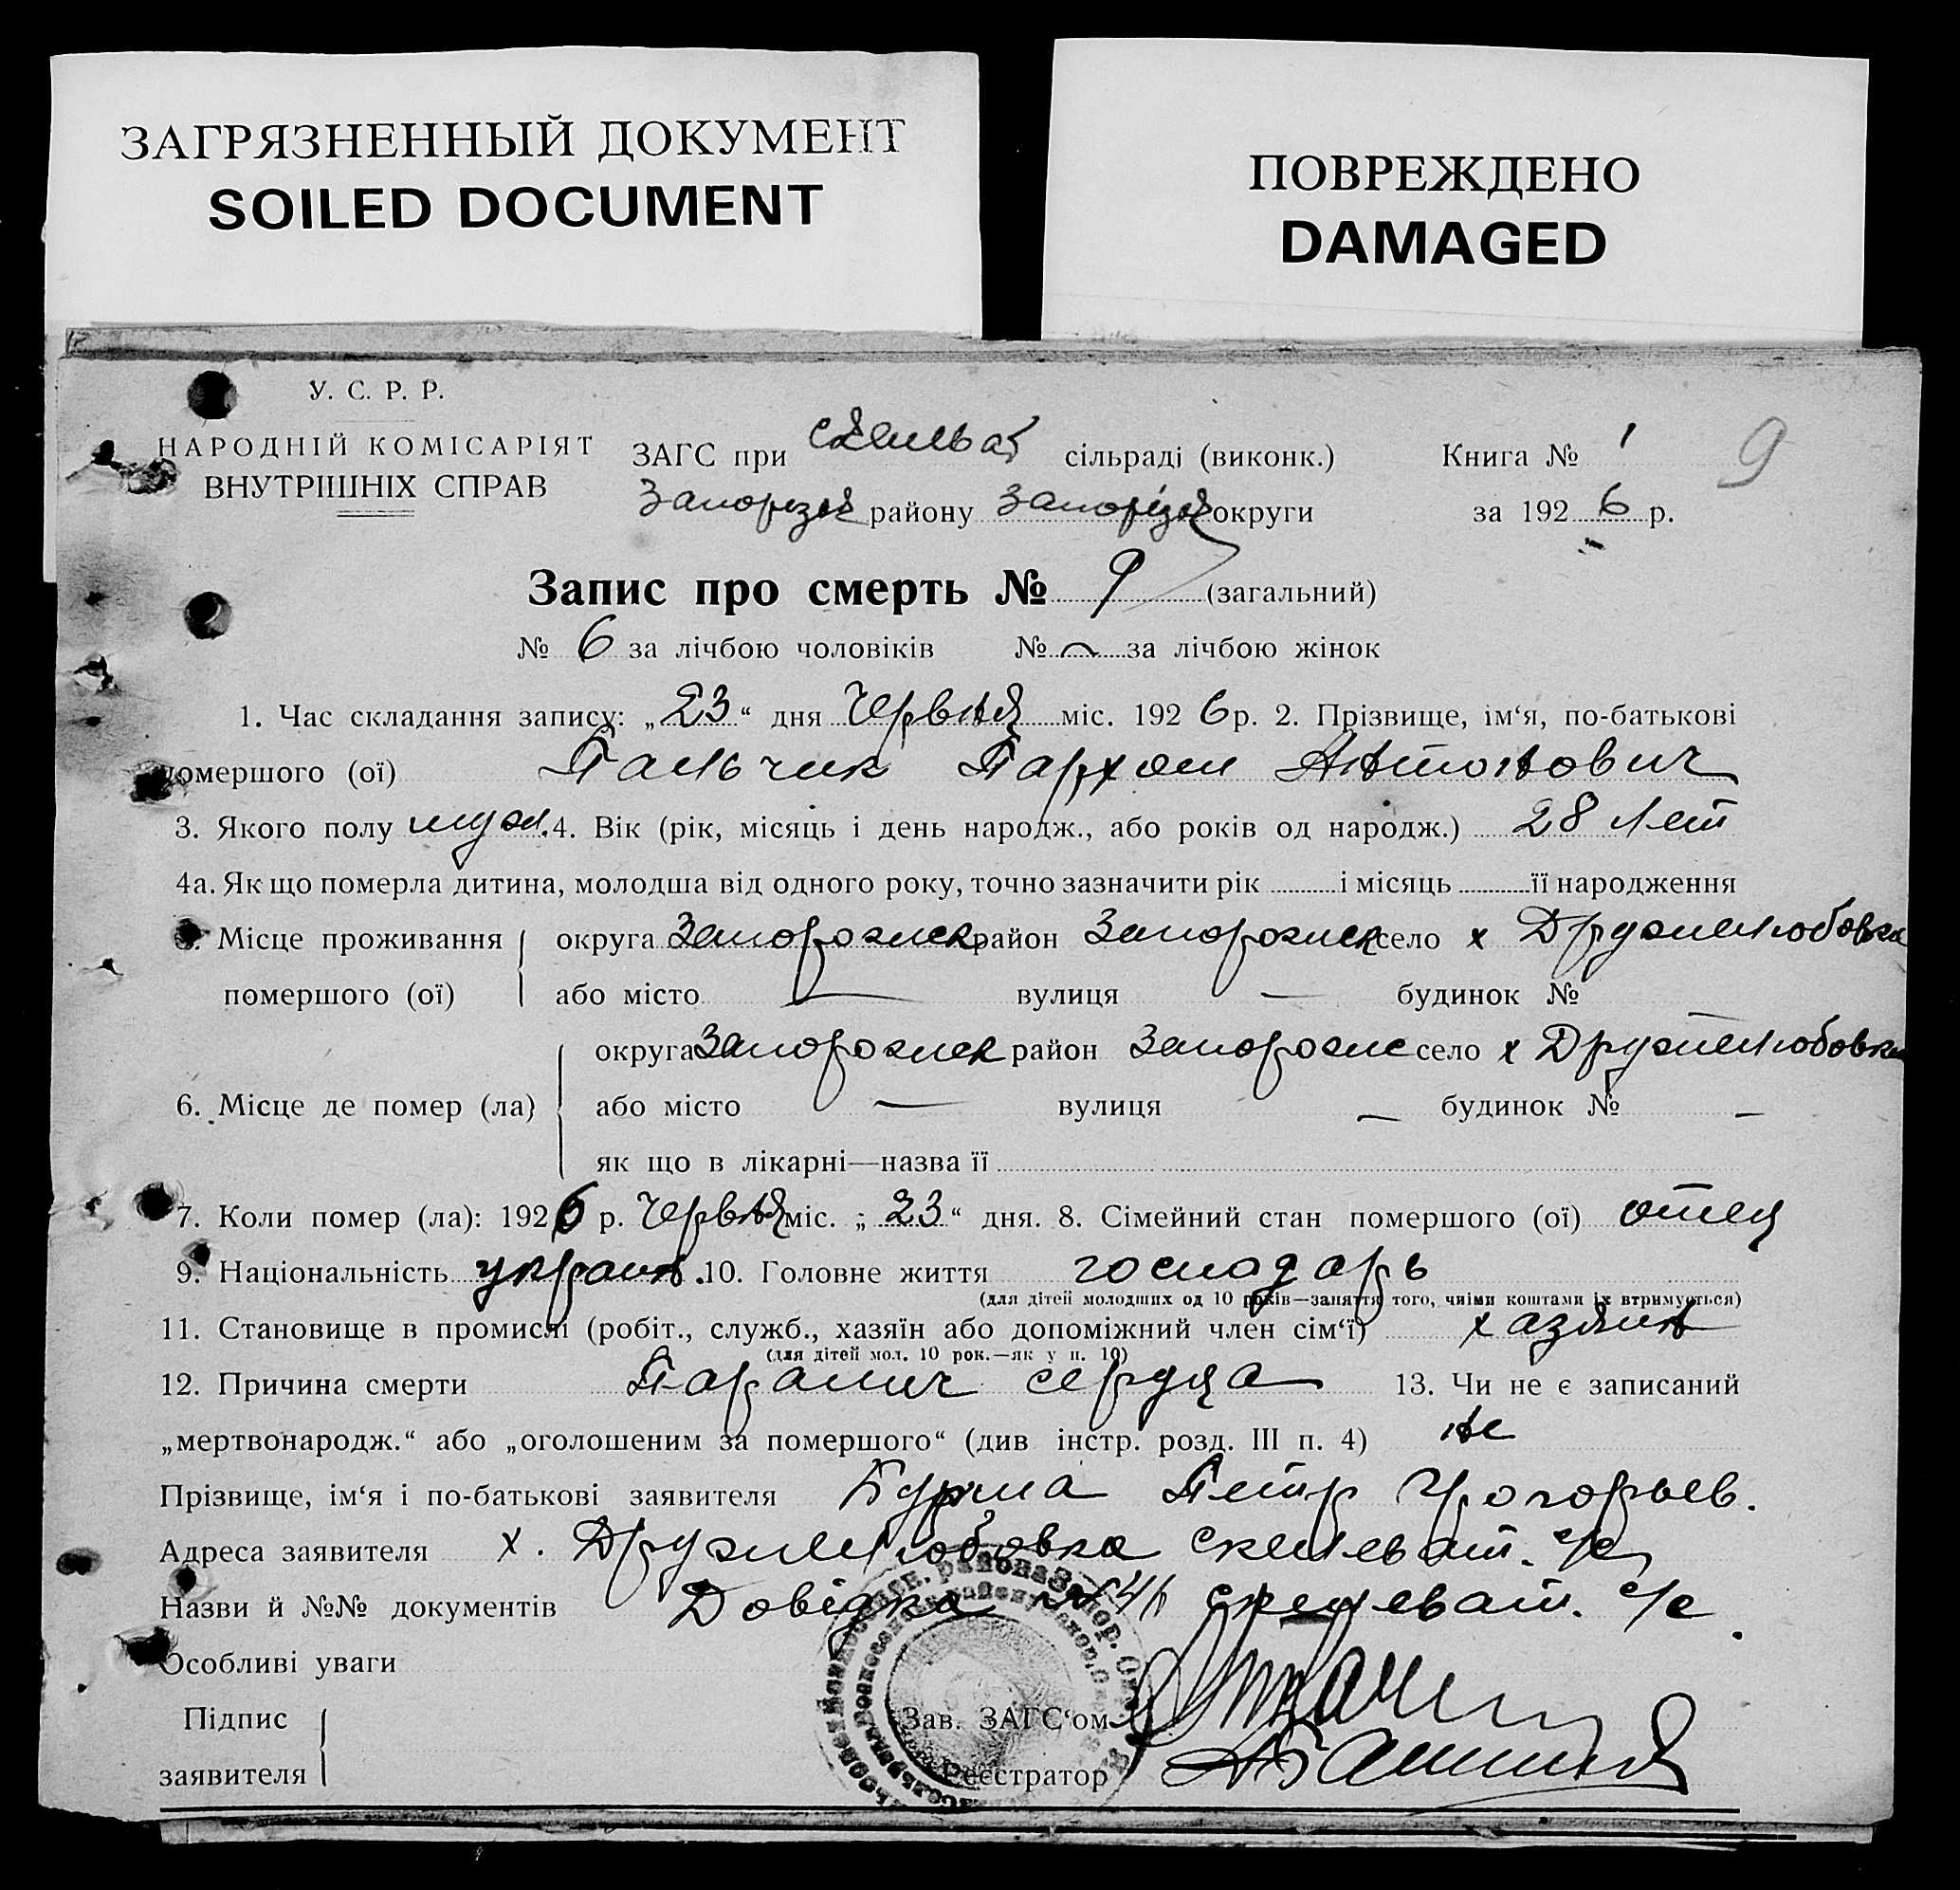 ЗАГРЯЗНЕННЫЙ ДОКУМЕНТ
SOILED DOCUMENT
ПОВРЕЖДЕНО
DAMAGED
У. С. Р. Р.
НАРОДНІЙ КОМІСАРІЯТ
ВНУТРІШНІХ СПРАВ
ЗАГС при сільраді (виконк.)
району округи
Книга № 1
9
за 1926 р.
Запис про смерть № 9 (загальний)
№ 6 за лічбою чоловіків № за лічбою жінок
1. Час складання запису: „23“ дня Червня міс. 1926 р. 2. Прізвище, ім‘я, по-батькові
помершого (ої) Пальчик Пархом Антонович
3. Якого полу муж. 4. Вік (рік, місяць і день народж., або років од народж.) 28 лет
4а. Як що померла дитина, молодша від одного року, точно зазначити рік і місяць її народження
5. Місце проживання округа Запорожск район Запорожск село х Дружелюбовка
помершого (ої) або місто — вулиця — будинок №
округа Запорожск район Запорожс село х Дружелюбовка
6. Місце де помер (ла) або місто — вулиця — будинок № —
як що в лікарні—назва її
7. Коли помер (ла): 1926 р. Червня міс. „23“ дня. 8. Сімейний стан помершого (ої) отец
9. Національність украин. 10. Головне життя господарь
(для дітей молодших од 10 років—заняття того, чиїми коштами їх втримується)
11. Становище в промислі (робіт., служб., хазяїн або допоміжний член сім‘ї) хазяин
(для дітей мол. 10 рок.—як у п. 10)
12. Причина смерти Паралич сердца 13. Чи не є записаний
„мертвонародж.“ або „оголошеним за помершого“ (див інстр. розд. III п. 4) не
Прізвище, ім‘я і по-батькові заявителя Петр
Адреса заявителя х. Дружелюбовка с/с
Назви й №№ документів Довідка с/с
Особливі уваги
Підпис
заявителя
Зав. ЗАГС‘ом
Реєстратор